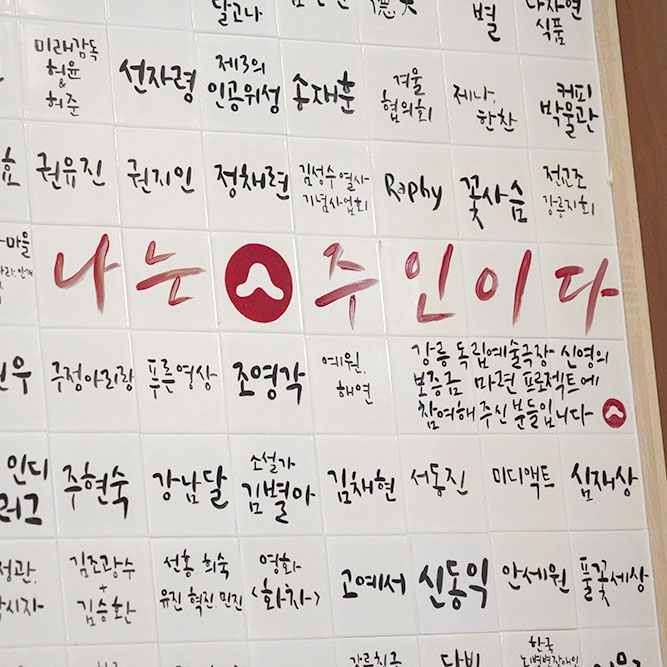 달고나
별
다자연
식품
미래감독
허윤
&
허준
선자령
제3의
인공위성
송재훈
겨울
협의회
제나,
한찬
커피
박물관
효
권유진
권지인
정채련
김성수열사
기념사업회
Raphy
꽃사슴
전교조
강릉지회
마을
나는 주인이다
주정아리랑
푸른영상
조영각
예원,
해연
강릉 독립예술극장 신영의
보증금 마련 프로젝트에
참여해 주신 분들입니다
인디
주현숙
강남달
소설가
김별아
김채현
서동진
미디액트
심재상
김조광수
+
김승환
선홍 희숙
유진 혁진 민진
영화
<화차>
고예서
신동익
안세원
풀꽃세상
한국